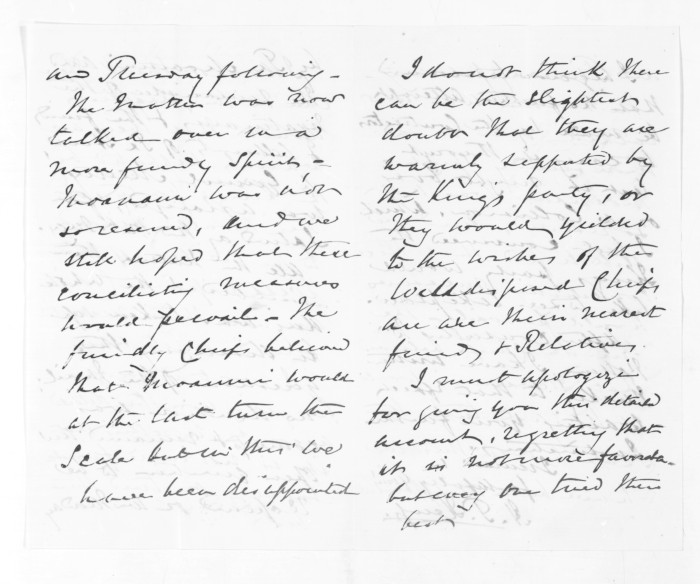 and Tuesday following –
The matter was now
talked over in a
more friendly Spirit –
Moananui was not
so reserved, and we
still hoped that these
conciliating measures
would prevail – The
friendly Chiefs believed
that Moananui would
at the last turn the
Scale but in this we
have been disappointed
I do not think there
can be the slightest
doubt that they are
warmly supported by
the Kings party, or
they would yielded
to the wishes of the
well disposed Chiefs
are their nearest
friends & Relatives
I must apologize
for giving you this detailed
account, regretting that
it is not more favorable
but every one tried their
best